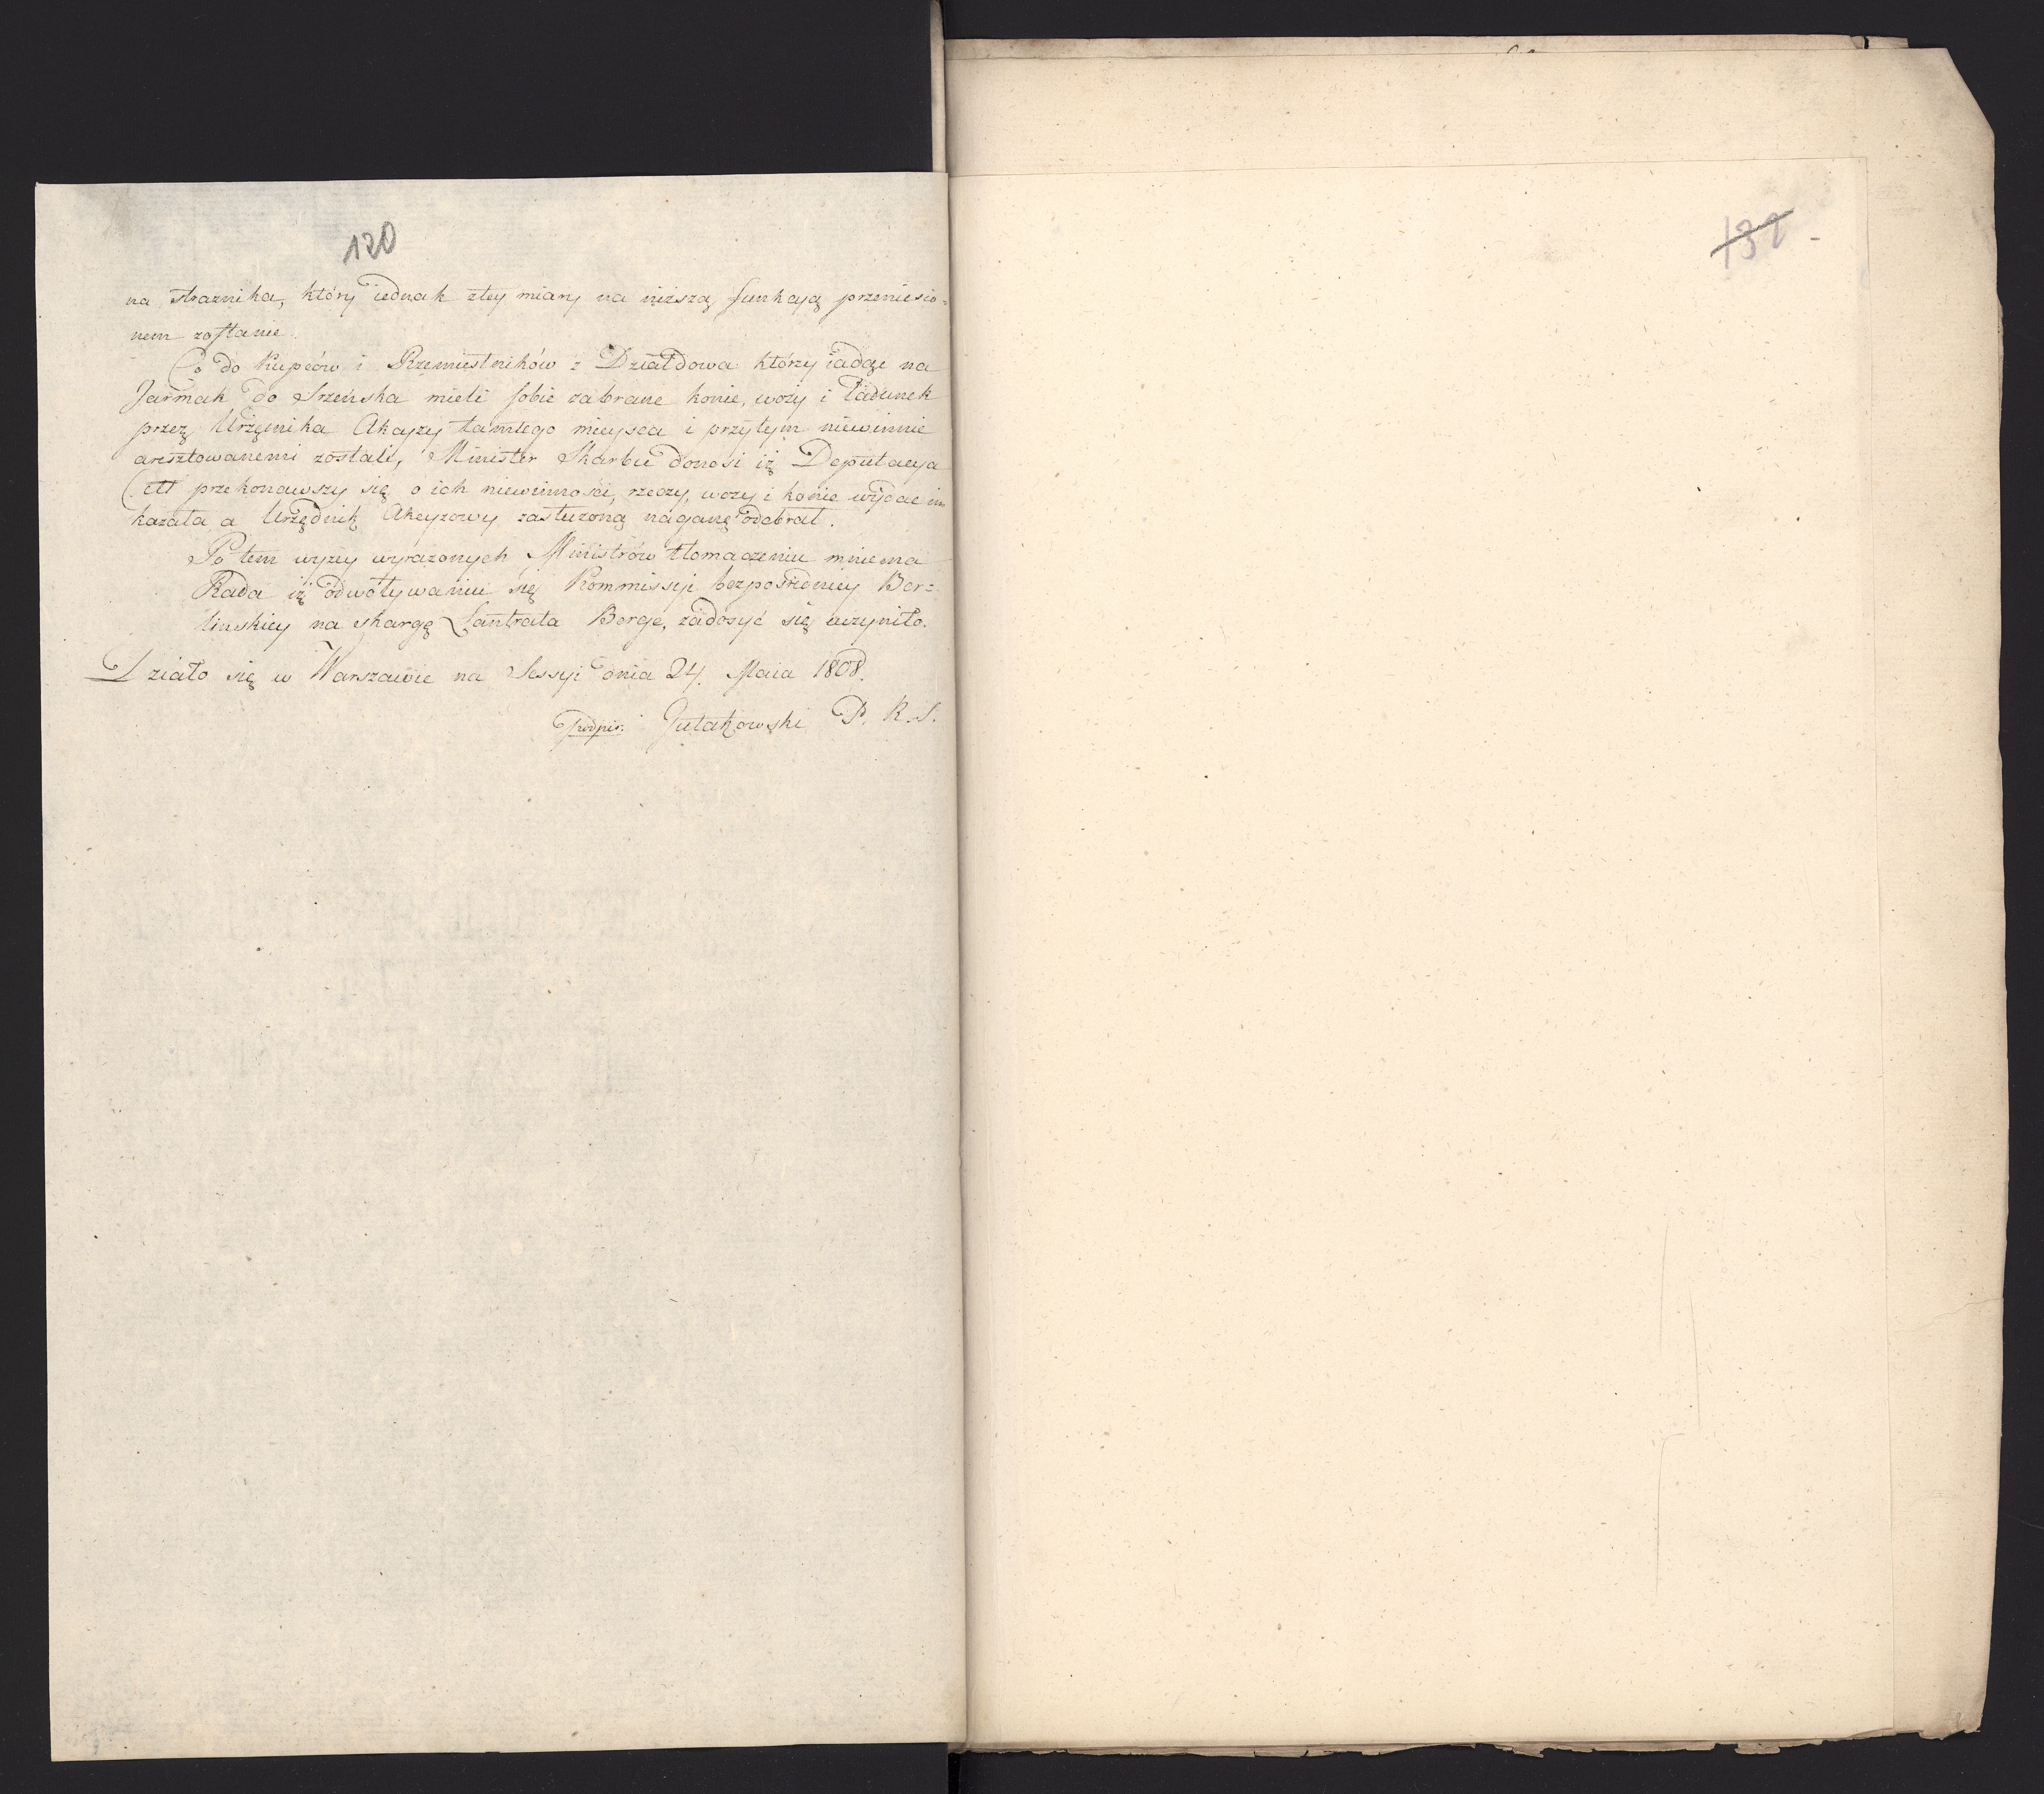 120
na strażnika, który iednak z tey miary na niższą funkcyą przeniesio=
nem zostanie.
Co do Kupców i Rzemieslników z Działdowa którzy iadąc na
Jarmak do Szeńska mieli sobie zabrane konie, wozy i ładunek
przez Urzęnika Akcyzy tamtego mieysca i przytym niewinnie
aresztowanemi zostali, Minister Skarbu donosi iż Deputacya
Cell przekonawszy się o ich niewinności, rzeczy, wozy i konie wydać im
kazała a Urzędnik Akcyzowy zasłużoną naganę odebrał.
Po tem wyzey wyrażonych Ministrów tłomaczeniu mniema
Rada iż odwoływaniu się Kommissyi bezpośredniey Ber=
linskiey na skargę Lantrata Berge, zadosyć się uczyniło.
Działo się w Warszawie na Sessyi dnia 24. Maia 1808.
podpis. Gutakowski P. R. S.
131 -